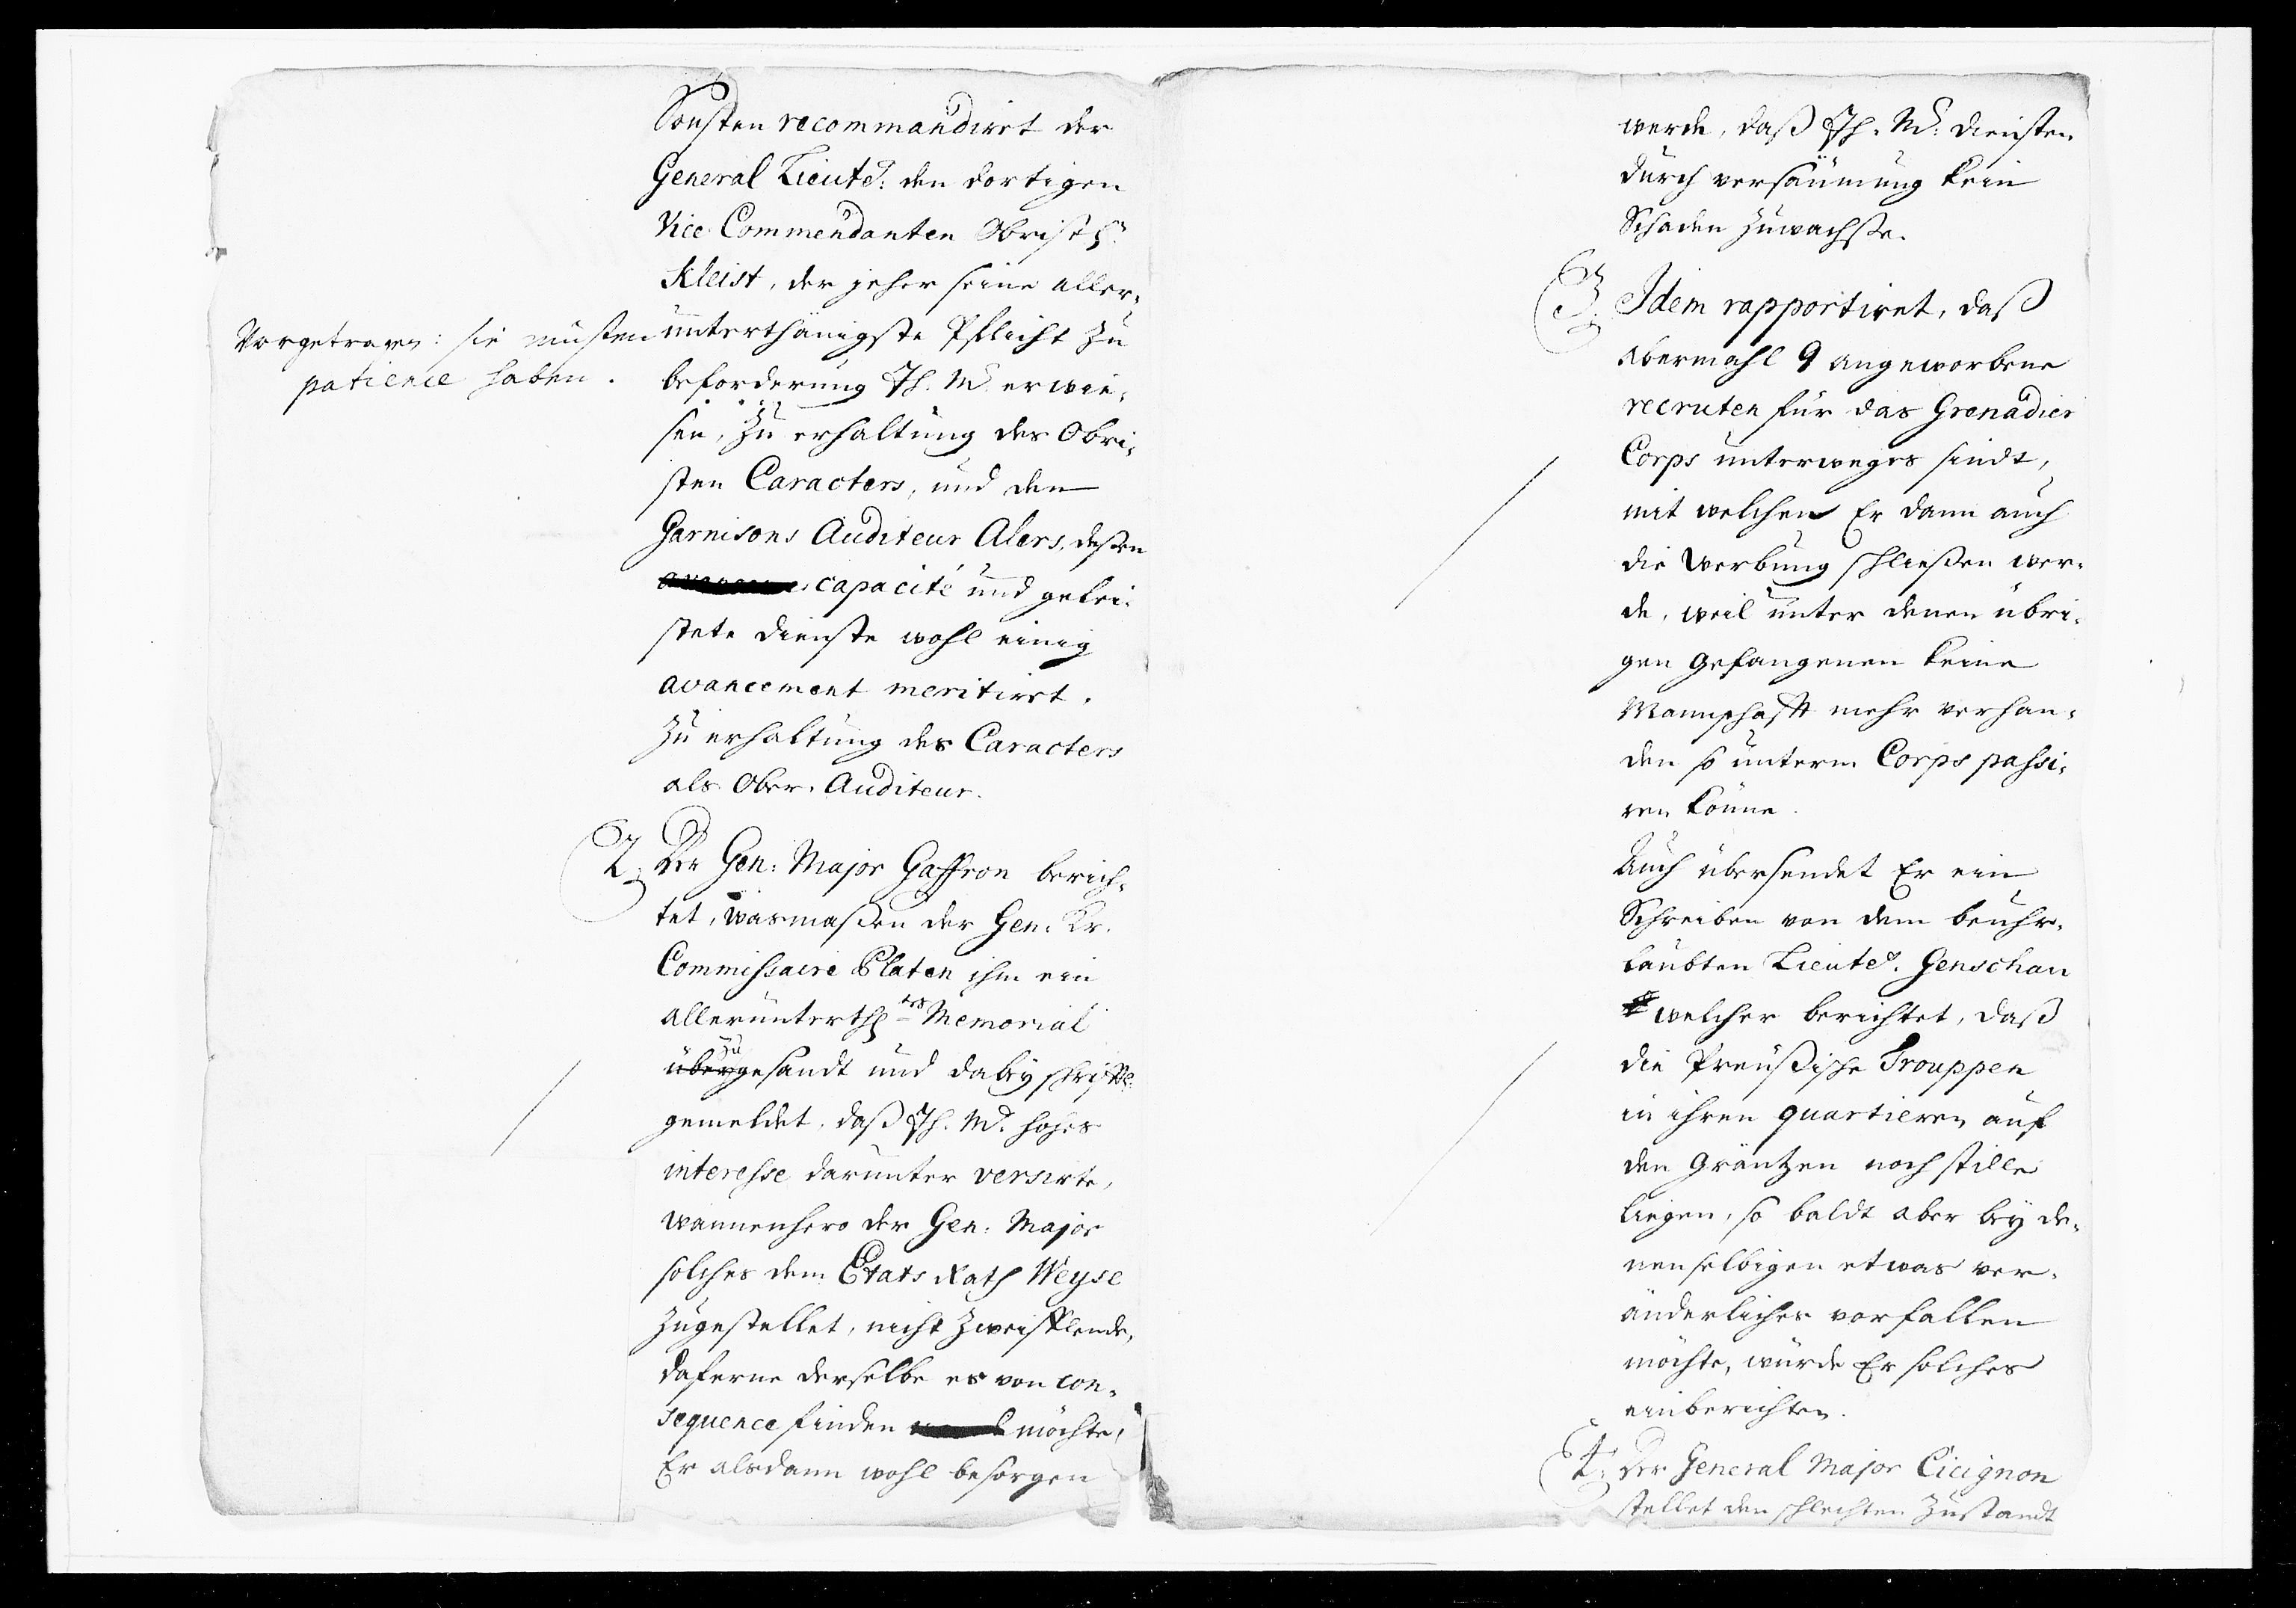 Sonsten recommandiret der
General Lieut: den dortigen
Vice Commendanten Obristl:
Kleist, der jeher seine aller,
unterthänigste Pflicht zu
Vorgetragen: sie müsten
patience haben.
beforderung Ih. M. erwie,
sen, zu erhaltung des Obri,
sten Caracters, und den
Garnisons Auditeur Alers, deßen
capacité und gelei,
stete dienste wohl einig
avancement meritiret.
Zu erhaltung des Caracters
als Ober Auditeur.
2. Der Gen: Major Gaffron berich,
tet, wasmaßen der Gen. Kr.
Commissaire Platen ihm ein
allerunterth tes Memorial
zu
übergesandt und dabey schrifftl.
gemeldet, daß Ih. M. hohes
interesse darunter versirte,
wannenhero der Gen: Major
solches dem Etats Rath Weyse
zugestellet, nicht zweifflende,
daferne derselbe es von con,
sequence finden möchte,
Er alsdann wohl besorgen
werde, daß Ih. M. diensten
durch versäumung kein
Schaden zuwachse.
3. Idem rapportiret, daß
abermahl 9 angeworbene
recruten für das Grenadier
Corps unterweges sindt,
mit welchen Er dann auch
die Werbung schließen wer,
de, weil unter denen übri,
gen gefangenen keine
Mannschafft mehr verhan,
den so unterm Corps passi,
ren könne.
Auch übersendet Er ein
Schreiben von dem beuhr,
laubten Lieut. Genschau
welcher berichtet, daß
die Preußische Trouppen
in ihren quartieren auf
den Gräntzen noch stille
liegen, so baldt aber bey de,
nenselbigen etwas ver,
änderliches vorfallen
möchte, würde Er solches
einberichten.
4. Der General Major Cicignon
stellet den schlechten Zustandt